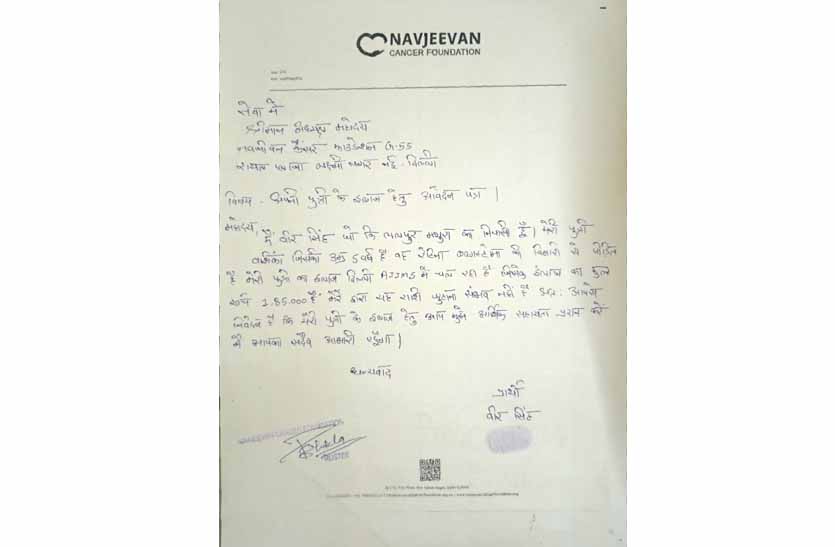 NAVJEEVAN
CANCER FOUNDATION
सेवा में
श्रीमान अध्यक्ष महोदय
नवजीवन कैंसर फाउंडेशन G-55
लक्ष्मी नगर नई दिल्ली
विषय - अपनी पुत्री के इलाज हेतु आवेदन पत्र |
महोदय,
मैं वीर सिंह जो कि मथुरा का निवासी हूँ | मेरी पुत्री
जिसकी उम्र 5 वर्ष है वह रेटिना की बिमारी से पीड़ित
है मेरी पुत्री का इलाज दिल्ली AIIMS में चल रहा है जिसके इलाज का कुल
खर्च 1,85,000 है मेरे द्वारा यह राशी जुटाना संभव नहीं है अतः आपसे
निवेदन है कि मेरी पुत्री के इलाज हेतु आप मुझे आर्थिक सहायता प्रदान करें
मैं आपका सदैव आभारी रहूँगा |
धन्यवाद
प्रार्थी
वीर सिंह